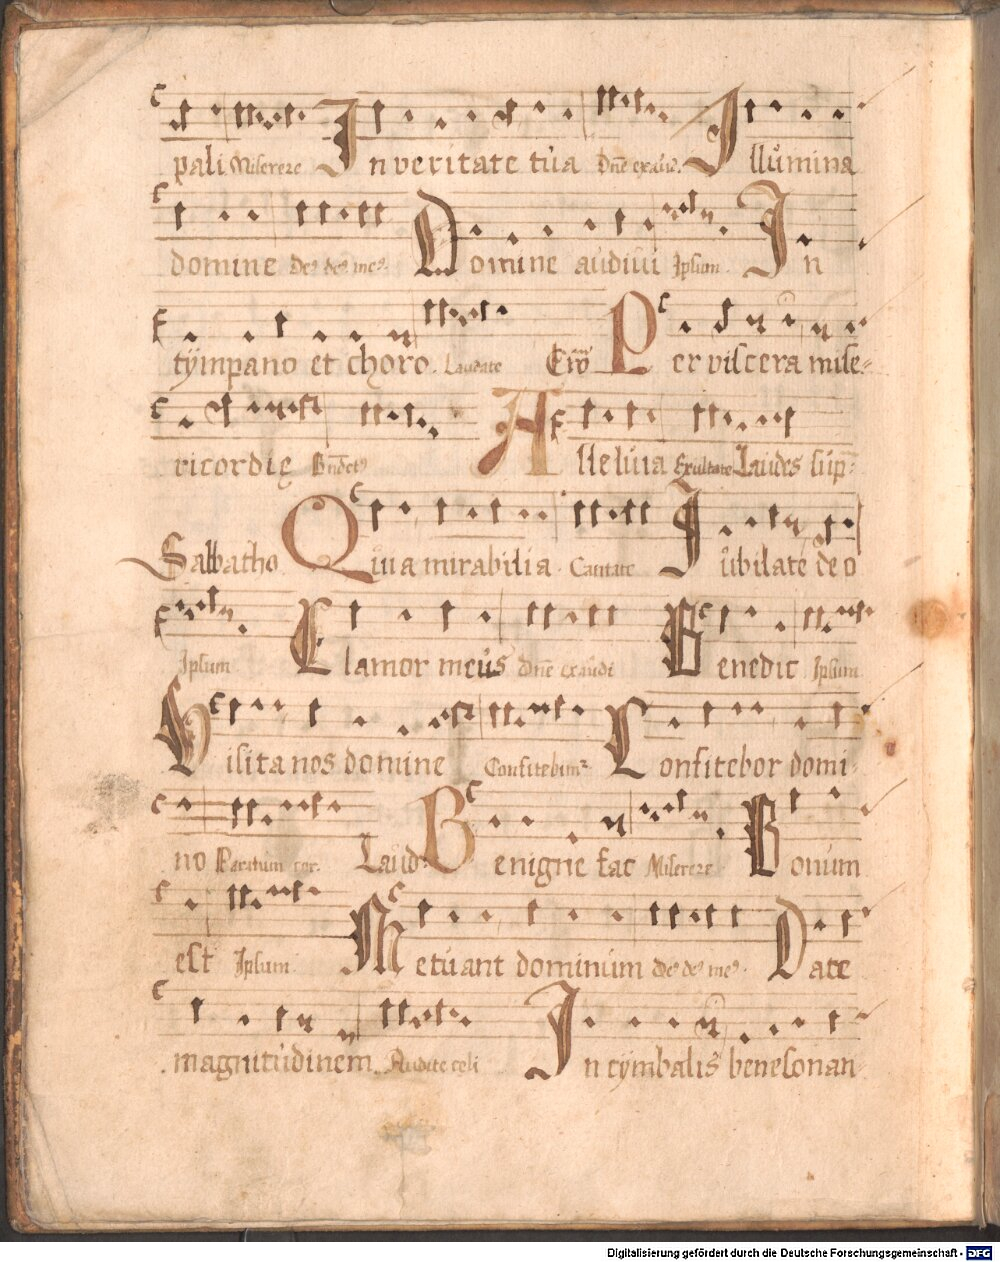 pali Miserere In veritate tua Dnē exaud. Illumina
domine deꝰ deꝰ meꝰ. Domine audivi Ipsum. In
tÿmpano et choro. Laudate Per viscera mise-
ricordię Bndctꝰ Alleluia Exultate Laudes sup:
Sabbatho Quia mirabilia. Cantate Iubilate deo
Ipsum Clamor meus Dnē exaudi Benedic Ipsum
Visita nos domine Confitebimʳ Confitebor domi-
no Paratum cor. Laud: Benigne fac Miserere. Bonum
est Ipsum. Metuant dominum deꝰ deꝰ meꝰ. Date
magnitudinem. Audite celi In cymbalis benesonan-
Digitalisierung gefördert durch die Deutsche Forschungsgemeinschaft - DFG